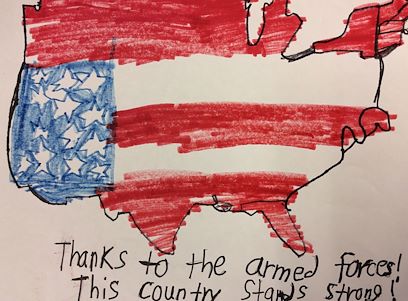 Thanks to the armed forces!
This country Stands strong!